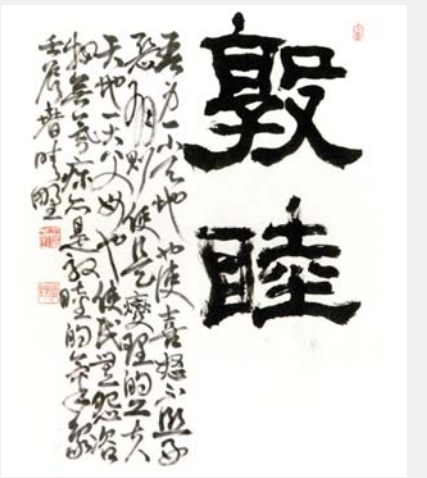 敦睦
吾身一小天地也使喜怒不愆好
惡有則便是燮理的功夫
天地一大父母也使民無怨咨
物無氛疹亦是敦睦的氣象
壬辰